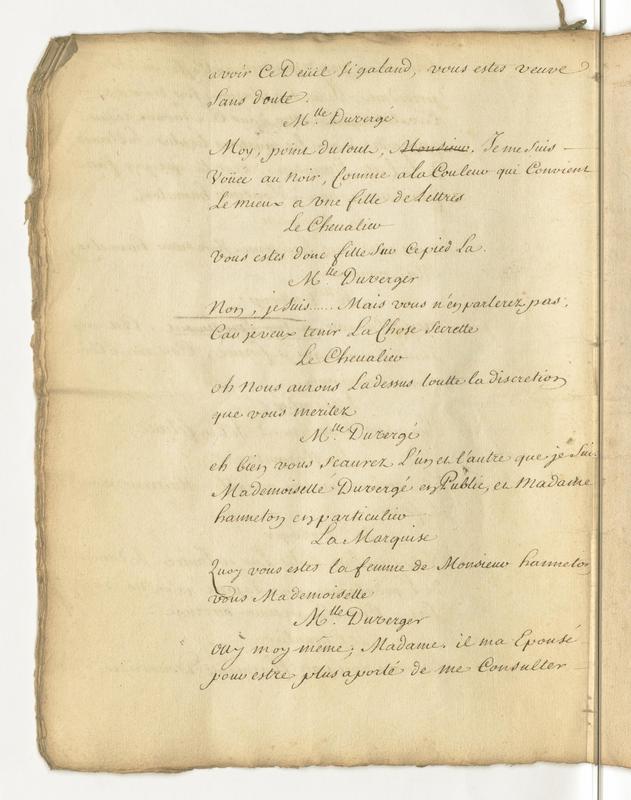 avoir Ce Deüil si galand, vous estes veuve
sans doute.
M.lle Duvergé
Moy, point du tout, Monsieur. Je me suis
Voüée au noir, Comme a la Couleur qui Convient
Le mieux a vne fille de Lettres
Le Chevalier
vous estes donc fille sur ce pied La.
M.lle Duverger
Non, je suis...... Mais vous n'en parlerez pas,
Car je veux tenir La Chose secrette
Le Chevalier
oh Nous aurons La dessus toutte la discretion
que vous meritez
M.lle Duvergé
eh bien vous scaurez L'un et l'autre que je suis
Mademoiselle Duvergé en Public, et Madame
hanneton en particulier
La Marquise
Quoy vous estes la femme de Monsieur hanneton
vous Mademoiselle
M.lle Duverger
ouy moy même, Madame. il ma Epousé
pour estre plus aporté de me Consulter